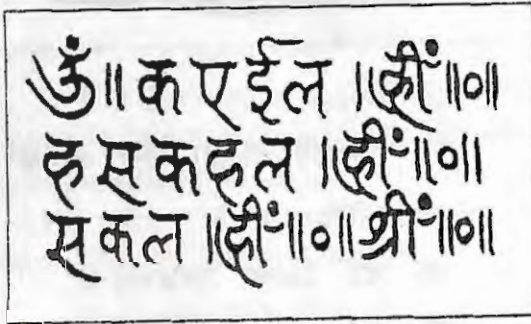 ॐ॥ क ए ई ल ।ह्रीँ॥०॥
ह स क ह ल ।ह्रीँ॥०॥
स क ल ।ह्रीँ॥०॥ श्रीँ॥०॥